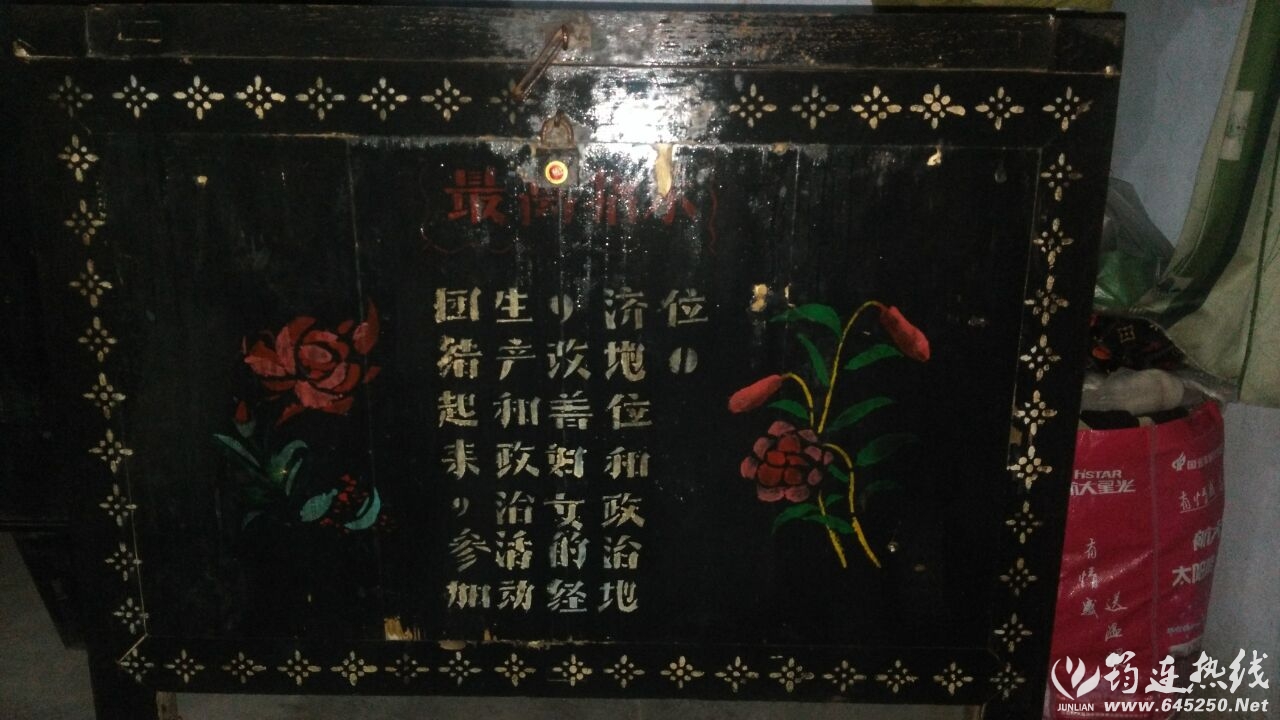 最高指示
团结起来，参加
生产和政治活动
，改善妇女的经
济地位和政治地
位。
大星光
有情
太阳
有情
送温
筠连热线
JUNLIAN www.645250.Net